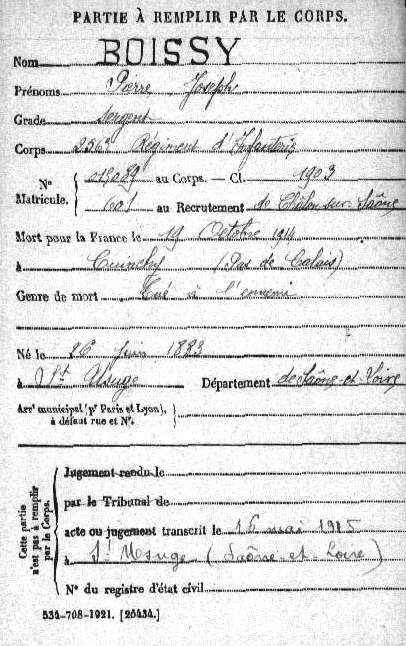 PARTIE À REMPLIR PAR LE CORPS.
Nom BOISSY
Prénoms Pierre Joseph
Grade sergent
Corps 256e Régiment d'Infanterie
N° Matricule. { 013089 au Corps. — Cl. 1903
601 au Recrutement de Châlon-sur-Saône
Mort pour la France le 19 Octobre 1914
à Cuinchy (Pas de Calais)
Genre de mort Tué à l'ennemi
Né le 26 Juin 1883
à St Usuge Département de Saône-et-Loire
Arrt municipal (pr Paris et Lyon), à défaut rue et N°. }
Cette partie n'est pas à remplir par le Corps. { Jugement rendu le
par le Tribunal de
acte ou jugement transcrit le 16 mai 1915
à St Usuge (Saône-et-Loire)
N° du registre d'état civil
534-708-1921. [26434.]